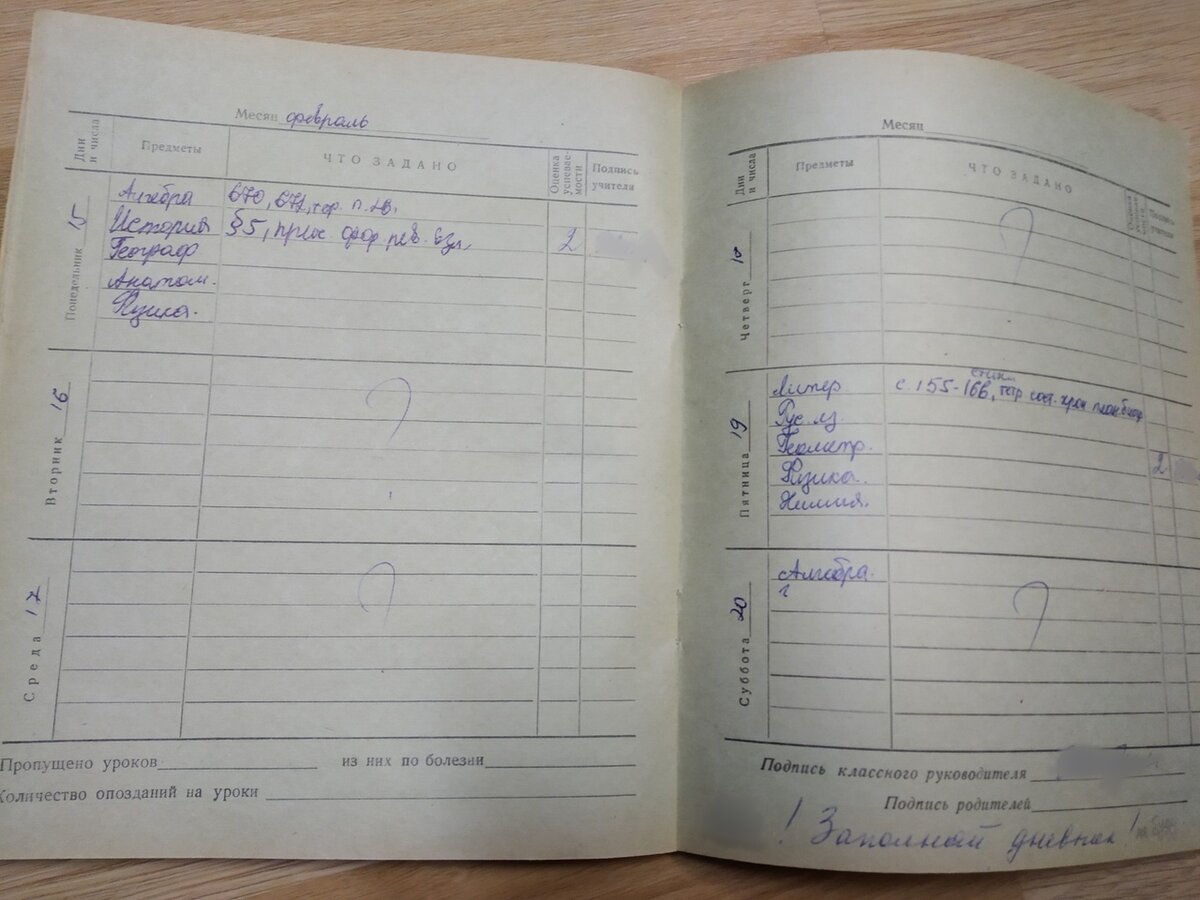 Месяц февраль
Дни и числа
Предметы
ЧТО ЗАДАНО
Оценка успеваемости
Подпись учителя
Понедельник 15
Алгебра 670, 671, тер. п.
История §5, 2
Географ
Анатом.
Физика.
Вторник 16
?
Среда 17
?
Пропущено уроков из них по болезни
Количество опозданий на уроки
Месяц
Дни и числа
Предметы
ЧТО ЗАДАНО
Оценка успеваемости
Подпись учителя
Четверг 18
?
Пятница 19
Литер с. 155-166, план
Рус. яз.
Геометр.
Физика. 2
Химия.
Суббота 20
Алгебра.
г
?
Подпись классного руководителя
Подпись родителей
! Заполняй дневник!